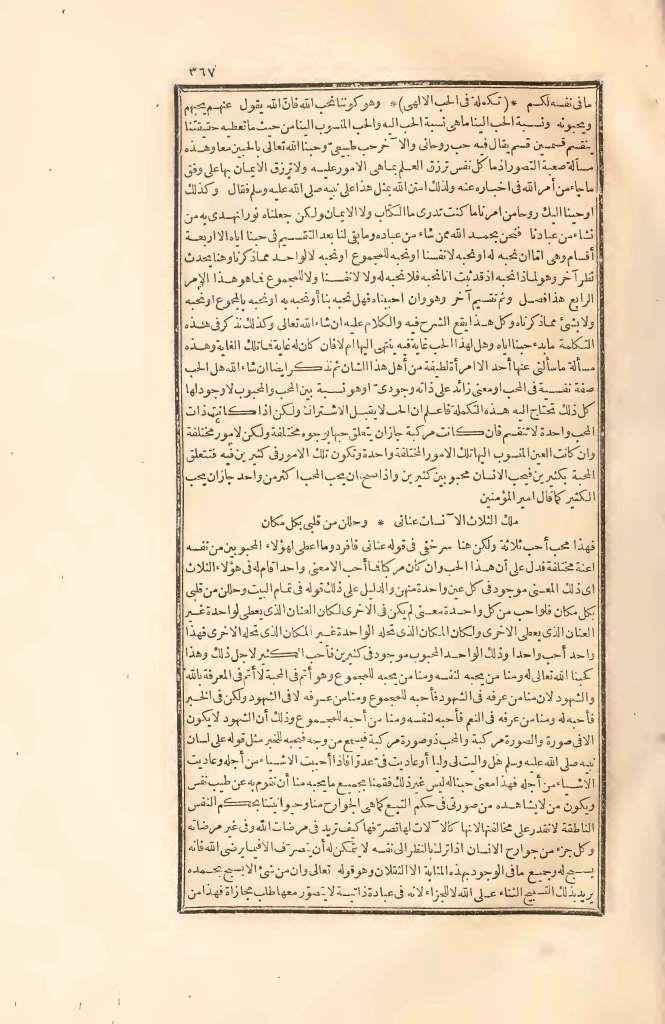 ٣٦٧
ما فى نفسه لكم * (تكملة فى الحب الالهى) * وهو كوننا نحب الله فان الله يقول عنهم يحبهم
ويحبونه ونسبة الحب الينا ما هى نسبة الحب اليه والحب المنسوب الينا من حيث ما تعطيه حقيقتنا
ينقسم قسمين قسم يقال فيه حب روحانى والآخر حب طبيعى وحبنا الله تعالى بالحبين معا وهذه
مسألة صعبة التصور اذ ما كل نفس ترزق العلم بما هى الامور عليه ولا ترزق الايمان بها على وفق
ما جاء من أمر الله فى اخباره عنه ولذلك امتن الله بمثل هذا على نبيه صلى الله عليه وسلم فقال وكذلك
اوحينا اليك روحا من امرنا ما كنت تدرى ما الكتاب ولا الايمان ولكن جعلناه نورا نهدى به من
نشاء من عبادنا فنحن بحمد الله ممن شاء من عباده وما بقى لنا بعد التقسيم فى حبنا اياه الا اربعة
أقسام وهى اما ان نحبه له او نحبه لانفسنا او نحبه للمجموع او نحبه لا لواحد مما ذكرناه وهنا يحدث
نظر آخر وهو لماذا نحبه اذ قد ثبت انا نحبه فلا نحبه له ولا لانفسنا ولا للمجموع فما هو هذا الامر
الرابع هذا فصل وثم تقسيم آخر وهو وان احببناه فهل نحبه بنا أو نحبه به او نحبه بالمجموع او نحبه
ولا بشئ مما ذكرناه وكل هذا يقع الشرح فيه والكلام عليه ان شاء الله تعالى وكذلك نذكر فى هذه
التكملة ما بدء حبنا اياه وهل لهذا الحب غاية فيه ينتهى اليها ام لا فان كان له غاية فما تلك الغاية وهذه
مسألة ما سألنى عنها أحد الا امرأة لطيفة من أهل هذا الشان ثم نذكر ايضا ان شاء الله هل الحب
صفة نفسية فى المحب او معنى زائد على ذاته وجودى او هو نسبة بين المحب والمحبوب لا وجود لها
كل ذلك تحتاج اليه هذه التكملة فاعلم ان الحب لا يقبل الاشتراك ولكن اذا كانت ذات
المحب واحدة لا تنقسم فان كانت مركبة جاز ان يتعلق حبها بوجوه مختلفة ولكن لامور مختلفة
وان كانت العين المنسوب اليها تلك الامور المختلفة واحدة وتكون تلك الامور فى كثيرين فيه فتتعلق
المحبة بكثيرين فيحب الانسان محبوبين كثيرين واذا صح ان يحب المحب اكثر من واحد جاز ان يحب
الكثير كما قال امير المؤمنين
ملك الثلاث الآنسات عنانى * وحللن من قلبى بكل مكان
فهذا محب أحب ثلاثة ولكن هنا سر خفى فى قوله عنانى فافرد وما اعطى لهؤلاء المحبوبين من نفسه
اعنة مختلفة فدل على أن هذا المحب وان كان مركبا فما أحب الا معنى واحدا قام له فى هؤلاء الثلاث
اى ذلك المعنى موجود فى كل عين واحدة منهن والدليل على ذلك قوله فى تمام البيت وحللن من قلبى
بكل مكان فلو احب من كل واحدة معنى لم يكن فى الاخرى لكان العنان الذى يعطى لواحدة غير
العنان الذى يعطى الاخرى ولكان المكان الذى تحله الواحدة غير المكان الذى تحله الاخرى فهذا
واحد أحب واحدا وذلك الواحد المحبوب موجود فى كثيرين فأحب الكثير لاجل ذلك وهذا
كحبنا الله تعالى له ومنا من يحبه لنفسه ومنا من يحبه للمجموع وهو أتم فى المحبة لانه أتم فى المعرفة بالله
والشهود لان منا من عرفه فى الشهود فأحبه للمجموع ومنا من عرفه لا فى الشهود ولكن فى الخبر
فأحبه له ومنا من عرفه فى النعم فأحبه لنفسه ومنا من أحبه للمجموع وذلك أن الشهود لا يكون
الا فى صورة والصورة مركبة والمحب ذو صورة مركبة فيسمع من وجه فيحبه للخبر مثل قوله على لسان
نبيه صلى الله عليه وسلم هل واليت لى وليا أو عاديت فى عدوا فاذا أحببت الاشياء من أجله وعاديت
الاشياء من أجله فهذا معنى حبنا له ليس غير ذلك فقمنا بجميع ما يحبه منا أن نقوم به عن طيب نفس
ويكون من لا يشاهده من صورتى فى حكم التبع كما هى الجوارح منا وحيوانيتنا بحكم النفس
الناطقة لا تقدر على مخالفتها لانها كالآلات لها تصرفها كيف تريد فى مرضات الله وفى غير مرضاته
وكل جزء من جوارح الانسان اذا ترك بالنظر الى نفسه لا يتمكن له أن يتصرف الا فيما يرضى الله فانه
يسبح له وجميع ما فى الوجود بهذه المثابة الا الثقلان وهو قوله تعالى وان من شئ الا يسبح بحمده
يريد بذلك التسبيح الثناء على الله لا للجزاء لانه فى عبادة ذاتية لا يتصور معها طلب مجازاة فهذا من